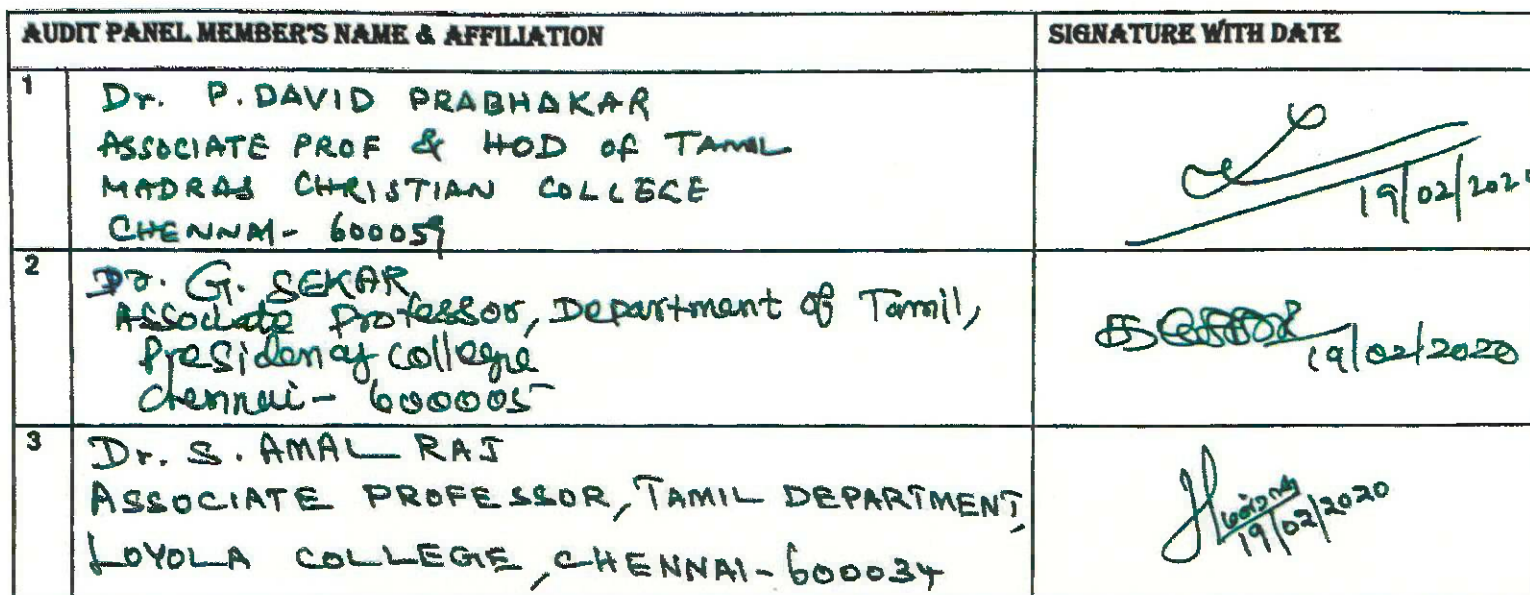 AUDIT PANEL MEMBER'S NAME & AFFILIATION SIGNATURE WITH DATE
1 Dr. P. DAVID PRABHAKAR
ASSOCIATE PROF & HOD of TAMIL
MADRAS CHRISTIAN COLLEGE
CHENNAI - 600059
19/02/202
2 Dr. G. SEKAR
Associate Professor, Department of Tamil,
Presidency college
Chennai - 600005
19/02/2020
3 Dr. S. AMAL RAJ
ASSOCIATE PROFESSOR, TAMIL DEPARTMENT,
LOYOLA COLLEGE, CHENNAI - 600034
19/02/2020